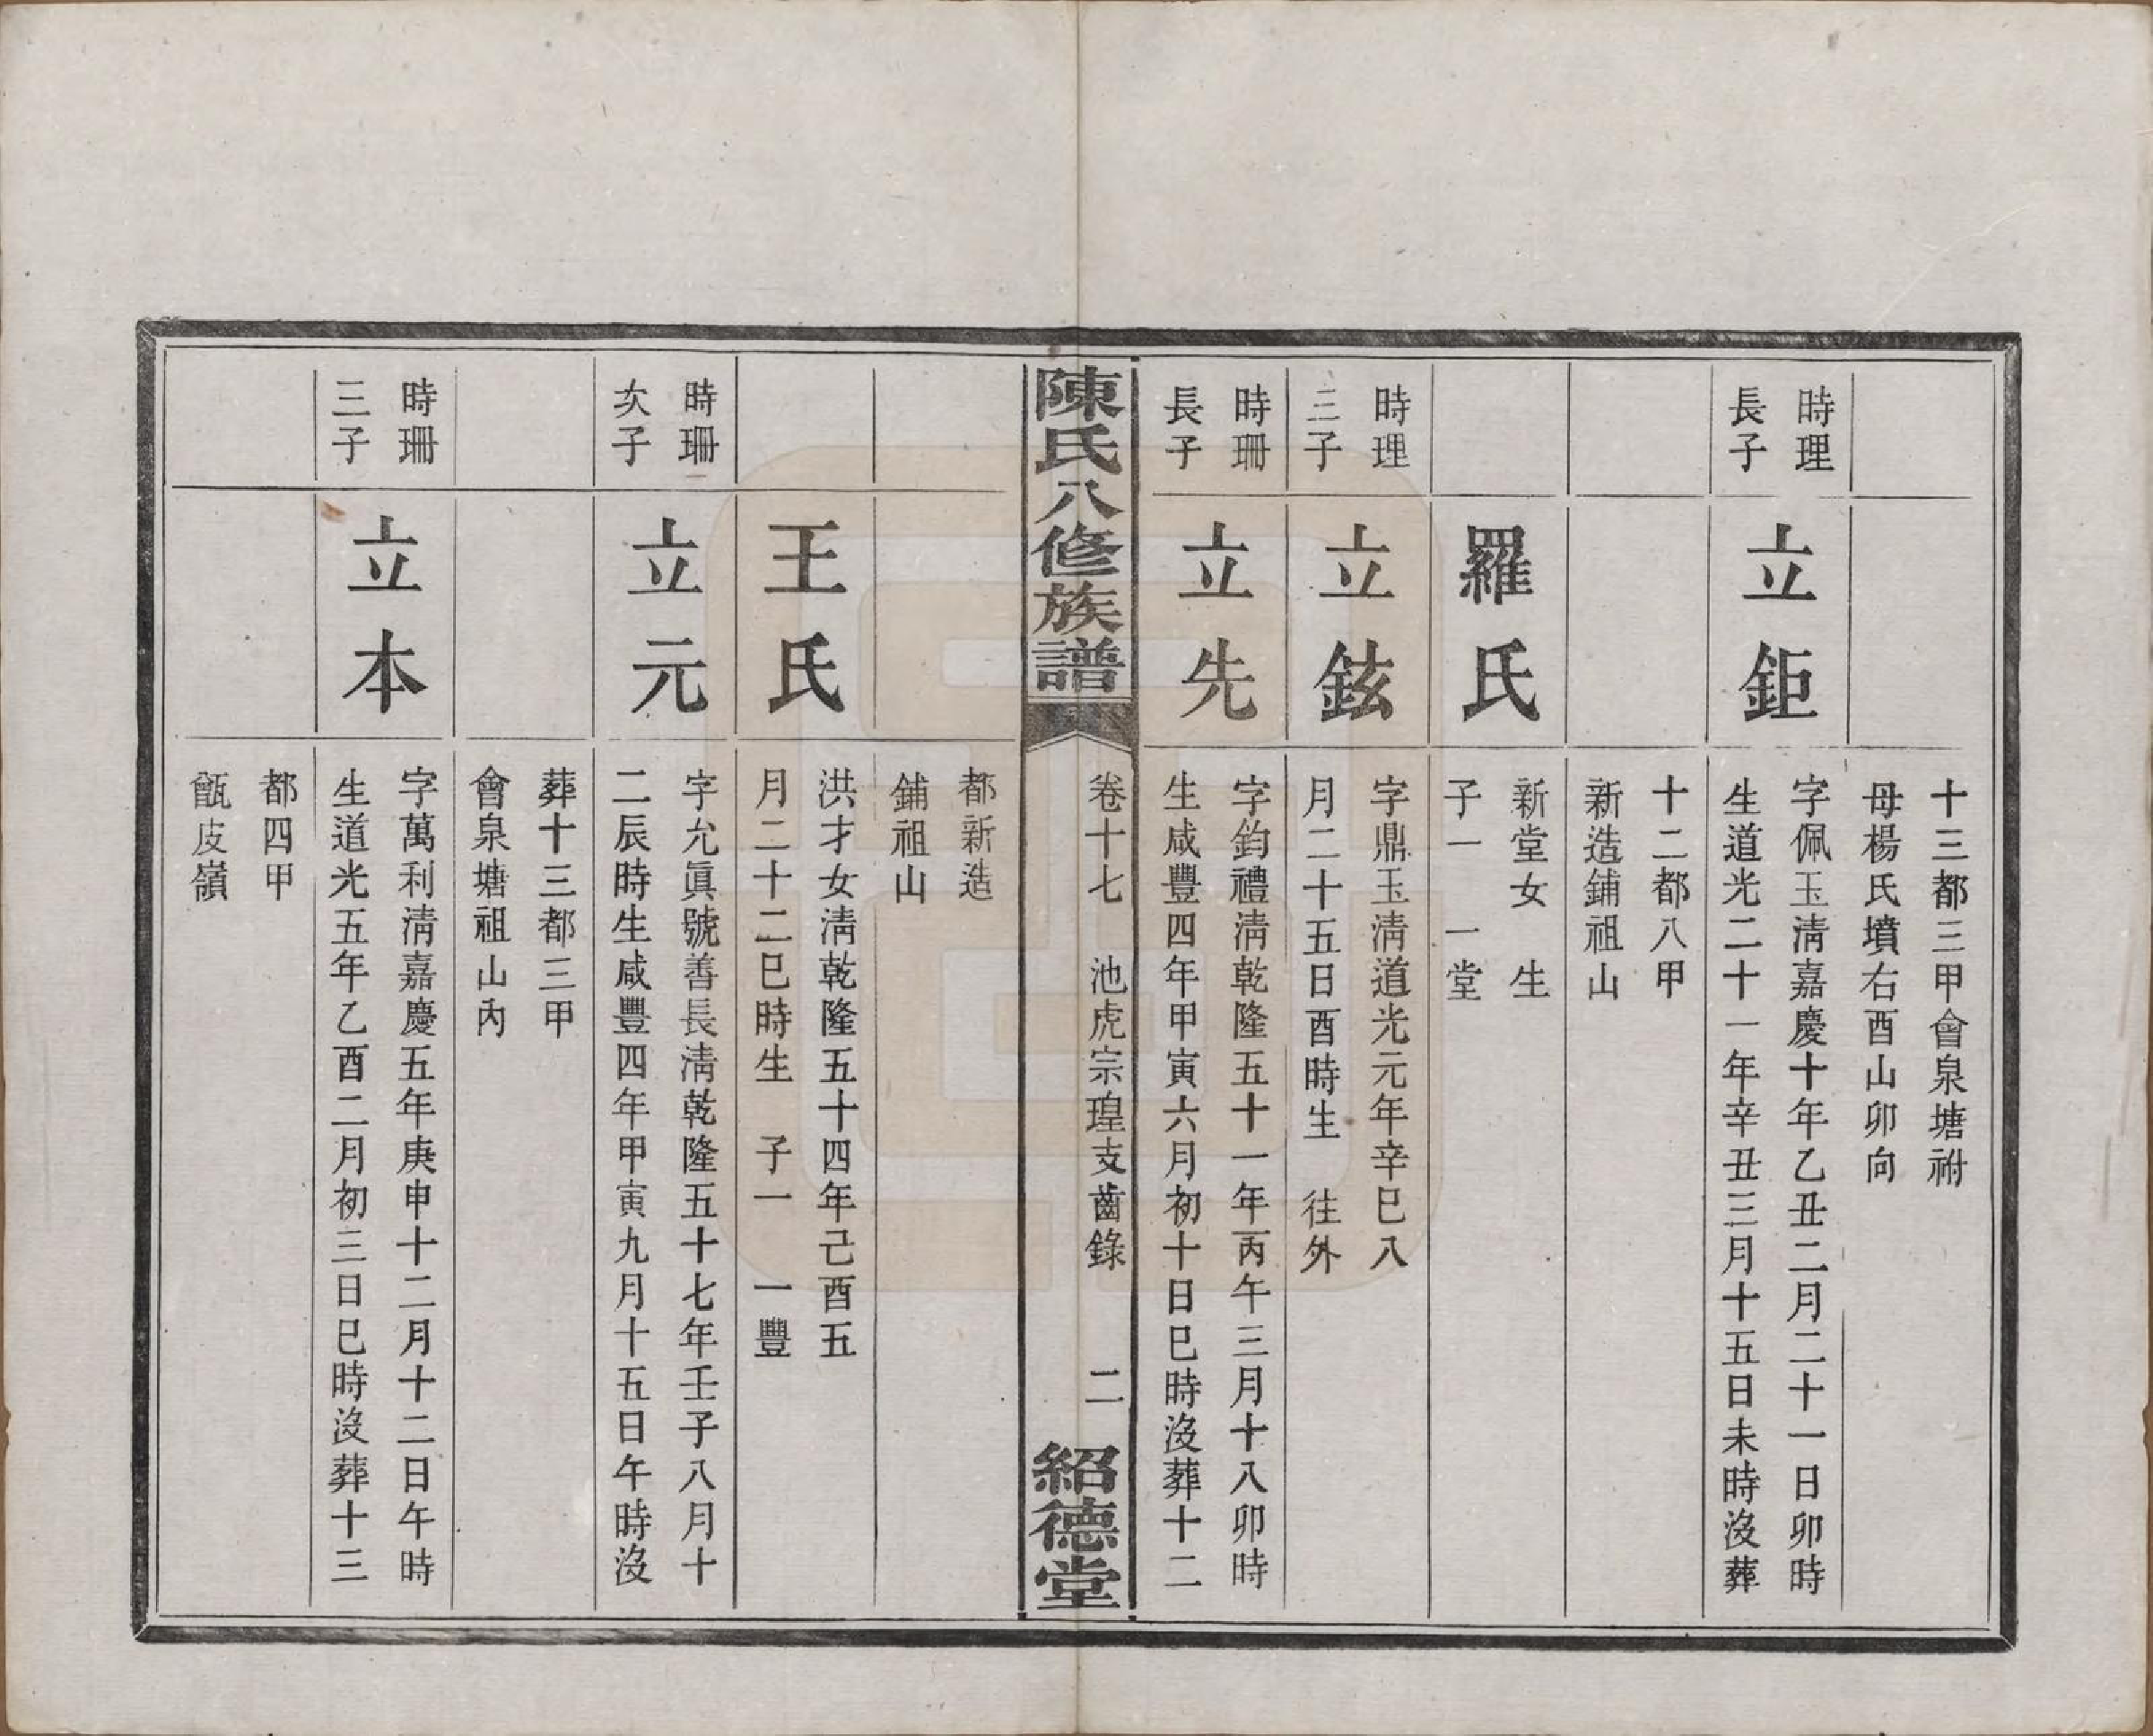 十三都三甲會泉塘祔
母楊氏墳右酉山卯向
時理
長子
立鉅
字佩玉清嘉慶十年乙丑二月二十一日卯時
生道光二十一年辛丑三月十五日未時沒葬
十二都八甲
新造鋪祖山
羅氏
新堂女 生
子一 一堂
時理
三子
立鉉
字鼎玉清道光元年辛巳八
月二十五日酉時生 往外
時珊
長子
立先
字鈞禮清乾隆五十一年丙午三月十八卯時
生咸豐四年甲寅六月初十日巳時沒葬十二
陳氏八修族譜
卷十七 池虎宗瑝支齒錄 二
紹德堂
都新造
鋪祖山
王氏
洪才女清乾隆五十四年己酉五
月二十二巳時生 子一 一豐
時珊
次子
立元
字允眞號善長清乾隆五十七年壬子八月十
二辰時生咸豐四年甲寅九月十五日午時沒
葬十三都三甲
會泉塘祖山內
時珊
三子
立本
字萬利清嘉慶五年庚申十二月十二日午時
生道光五年乙酉二月初三日巳時沒葬十三
都四甲
甑皮嶺